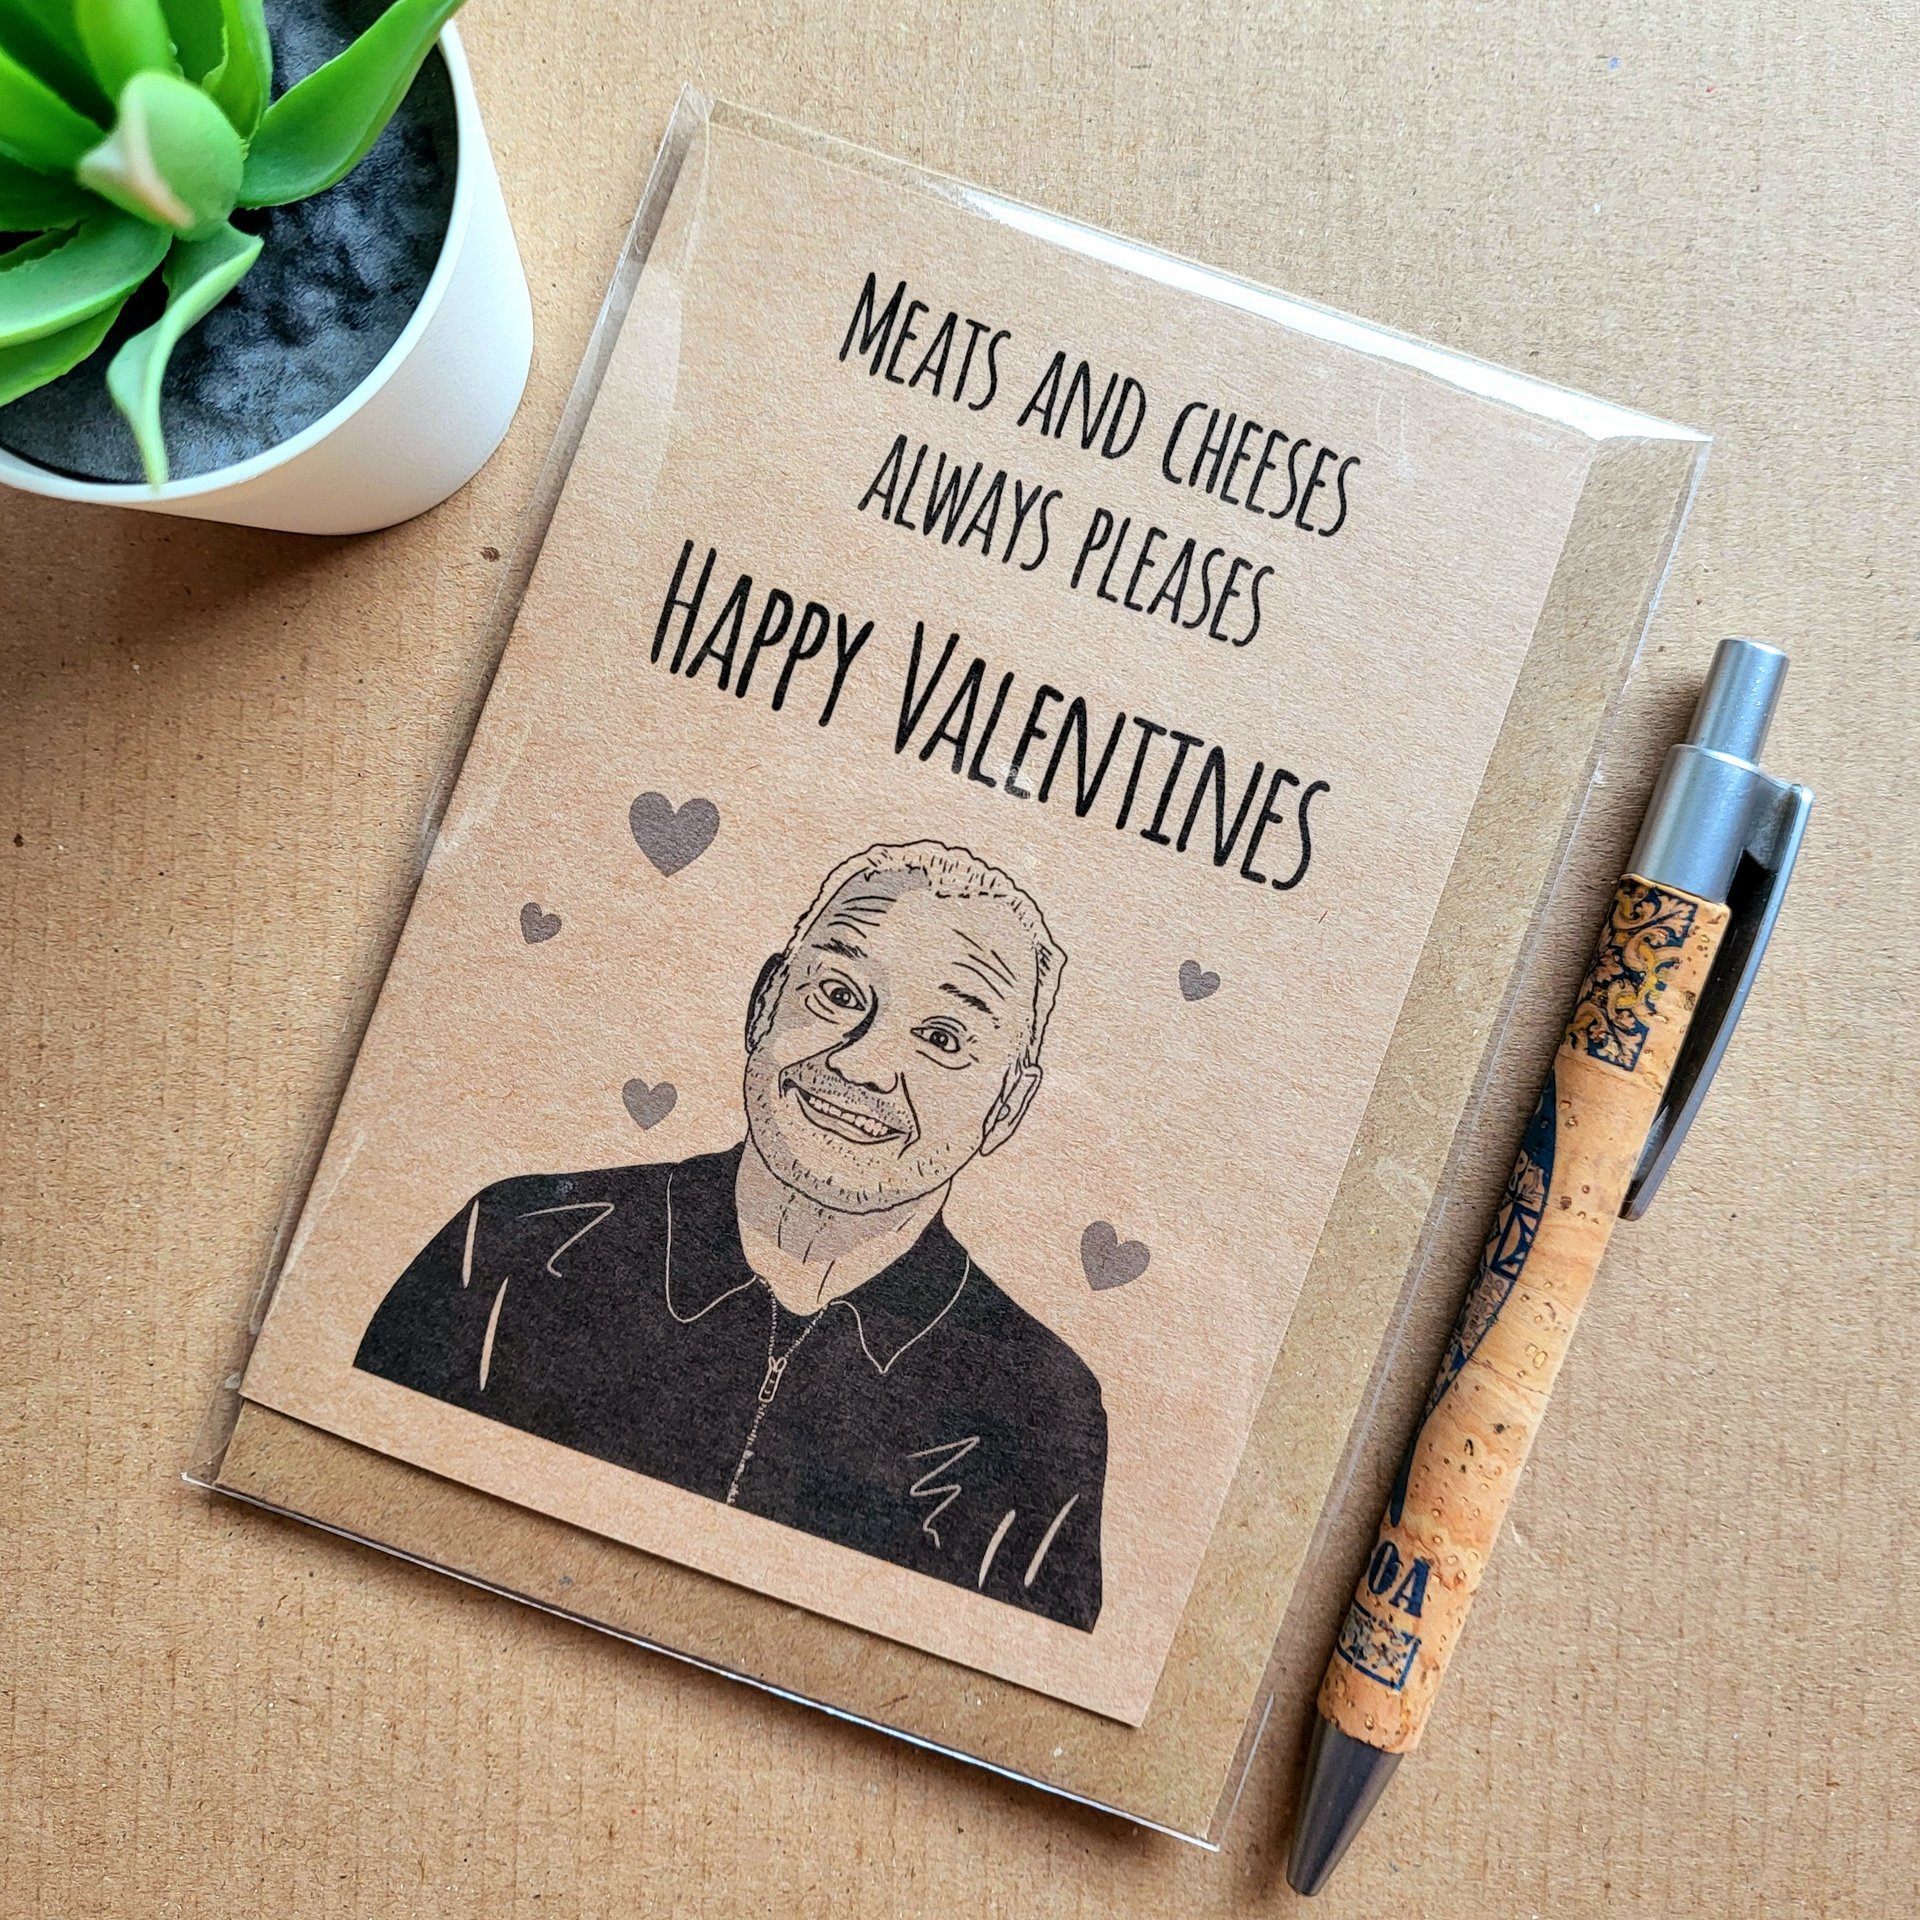 Meats and cheeses
always pleases
Happy Valentines
OA